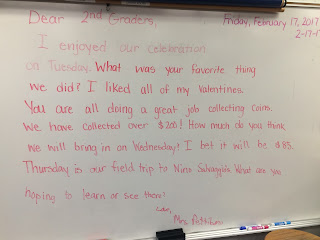 Dear 2nd Graders, Friday, February 17, 2017
2-17-17
I enjoyed our celebration
on Tuesday. What was your favorite thing
we did? I liked all of my Valentines.
You are all doing a great job collecting coins.
We have collected over $200! How much do you think
we will bring in on Wednesday? I bet it will be $85.
Thursday is our field trip to Nina What are you
hoping to learn or see there?
Love,
Mrs.